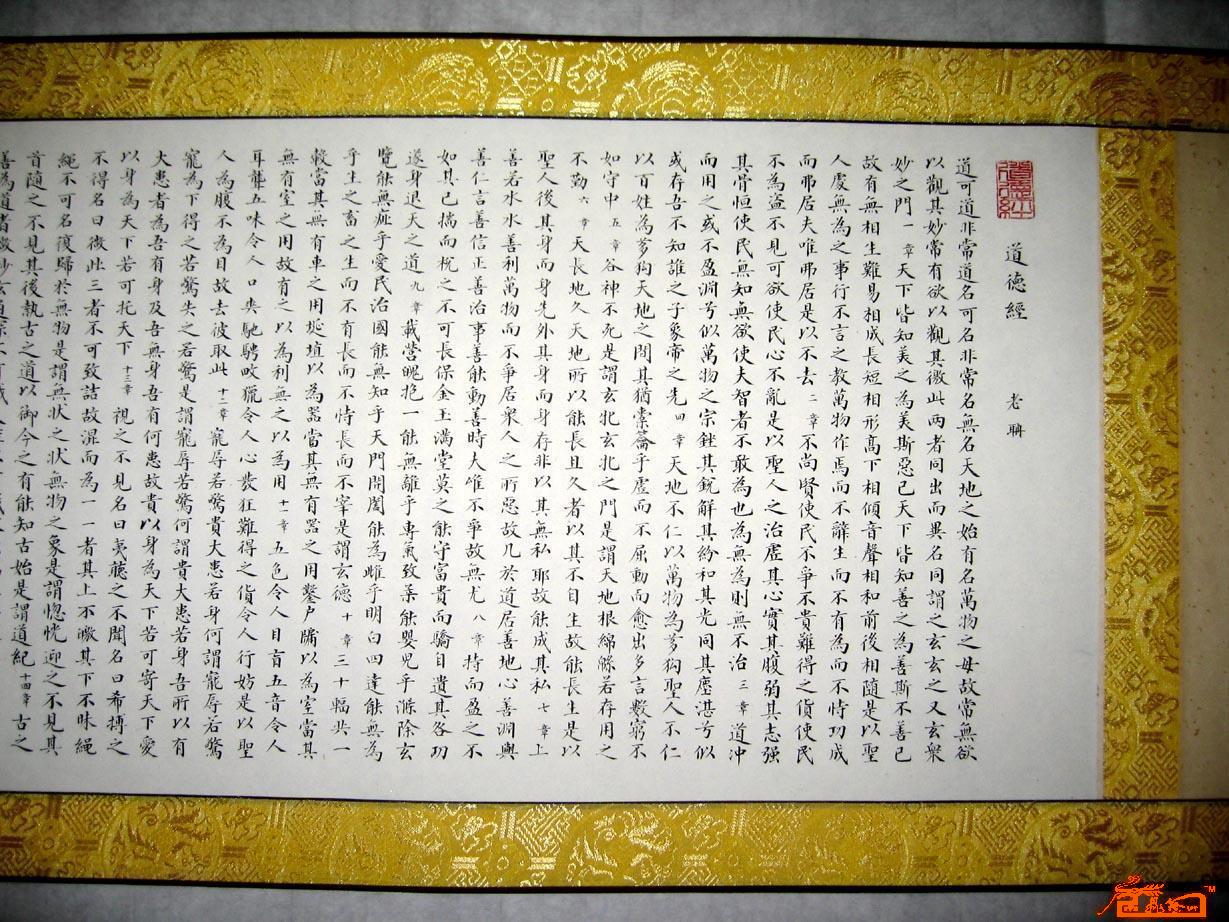 道德經 老聃
道可道非常道名可名非常名無名天地之始有名萬物之母故常無欲
以觀其妙常有欲以觀其徼此兩者同出而異名同謂之玄玄之又玄衆
妙之門一章天下皆知美之為美斯惡已天下皆知善之為善斯不善已
故有無相生難易相成長短相形高下相傾音聲相和前後相隨是以聖
人處無為之事行不言之教萬物作焉而不辭生而不有為而不恃功成
而弗居夫唯弗居是以不去二章不尚賢使民不爭不貴難得之貨使民
不為盜不見可欲使民心不亂是以聖人之治虛其心實其腹弱其志强
其骨恒使民無知無欲使夫智者不敢為也為無為則無不治三章道沖
而用之或不盈淵兮似萬物之宗銼其銳解其紛和其光同其塵湛兮似
或存吾不知誰之子象帝之先四章天地不仁以萬物為芻狗聖人不仁
以百姓為芻狗天地之間其猶橐籥乎虛而不屈動而愈出多言數窮不
如守中五章谷神不死是謂玄牝玄牝之門是謂天地根綿緜若存用之
不勤六章天長地久天地所以能長且久者以其不自生故能長生是以
聖人後其身而身先外其身而身存非以其無私耶故能成其私七章上
善若水水善利萬物而不爭居衆人之所惡故几於道居善地心善淵與
善仁言善信正善治事善能動善時夫唯不爭故無尤八章持而盈之不
如其已揣而梲之不可長保金玉滿堂莫之能守富貴而驕自遺其咎功
遂身退天之道九章載營魄抱一能無離乎專氣致柔能嬰兒乎滌除玄
覽能無疵乎愛民治國能無知乎天門開闔能為雌乎明白四達能無為
乎生之畜之生而不有長而不恃長而不宰是謂玄德十章三十輻共一
轂當其無有車之用埏埴以為器當其無有器之用鑿戶牖以為室當其
無有室之用故有之以為利無之以為用十一章五色令人目盲五音令人
耳聾五味令人口爽馳騁畋獵令人心發狂難得之貨令人行妨是以聖
人為腹不為目故去彼取此十二章寵辱若驚貴大患若身何謂寵辱若驚
寵為下得之若驚失之若驚是謂寵辱若驚何謂貴大患若身吾所以有
大患者為吾有身及吾無身吾有何患故貴以身為天下若可寄天下愛
以身為天下若可托天下十三章視之不見名曰夷聽之不聞名曰希搏之
不得名曰微此三者不可致詰故混而為一一者其上不皦其下不昧繩
繩不可名復歸於無物是謂無狀之狀無物之象是謂惚恍迎之不見其
首隨之不見其後執古之道以御今之有能知古始是謂道紀十四章古之
善為道者微妙玄